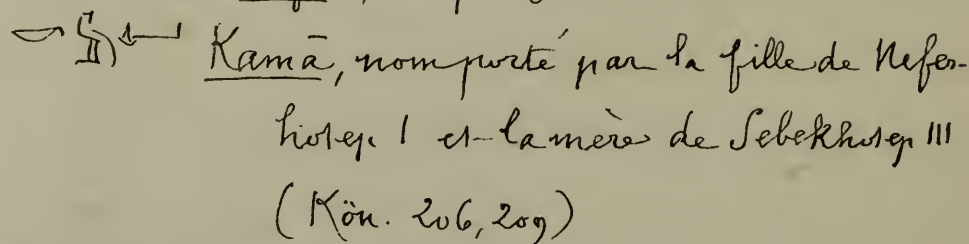 Kamā, nom porté par la fille de Nefer-
hotep I et la mère de Sebekhotep III
(Kön. 206, 209)